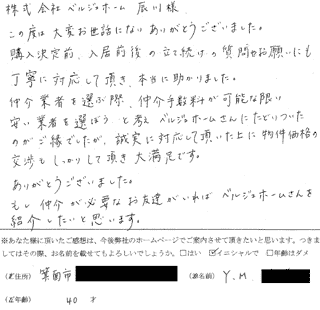 株式会社ベルジョホーム 辰川様
この度は大変お世話になりありがとうございました。
購入決定前、入居前後の立て続けの質問やお願いにも
丁寧に対応して頂き、本当に助かりました。
仲介業者を選ぶ際、仲介手数料が可能な限り
安い業者を選ぼうと考えベルジョホームさんにたどりついた
のがご縁でしたが、誠実に対応して頂いた上に物件価格の
交渉もしっかりして頂き大満足です。
ありがとうございました。
もし仲介が必要なお友達がいればベルジョホームさんを
紹介したいと思います。
※あなた様に頂いたご感想は、今後弊社のホームページでご案内させて頂きたいと思います。つきま
してはその際、お名前を載せてもよろしいでしょうか。□はい ☑イニシャルで □年齢はダメ
住所) 箕面市 お名前) Y.M.
年齢) 40 才